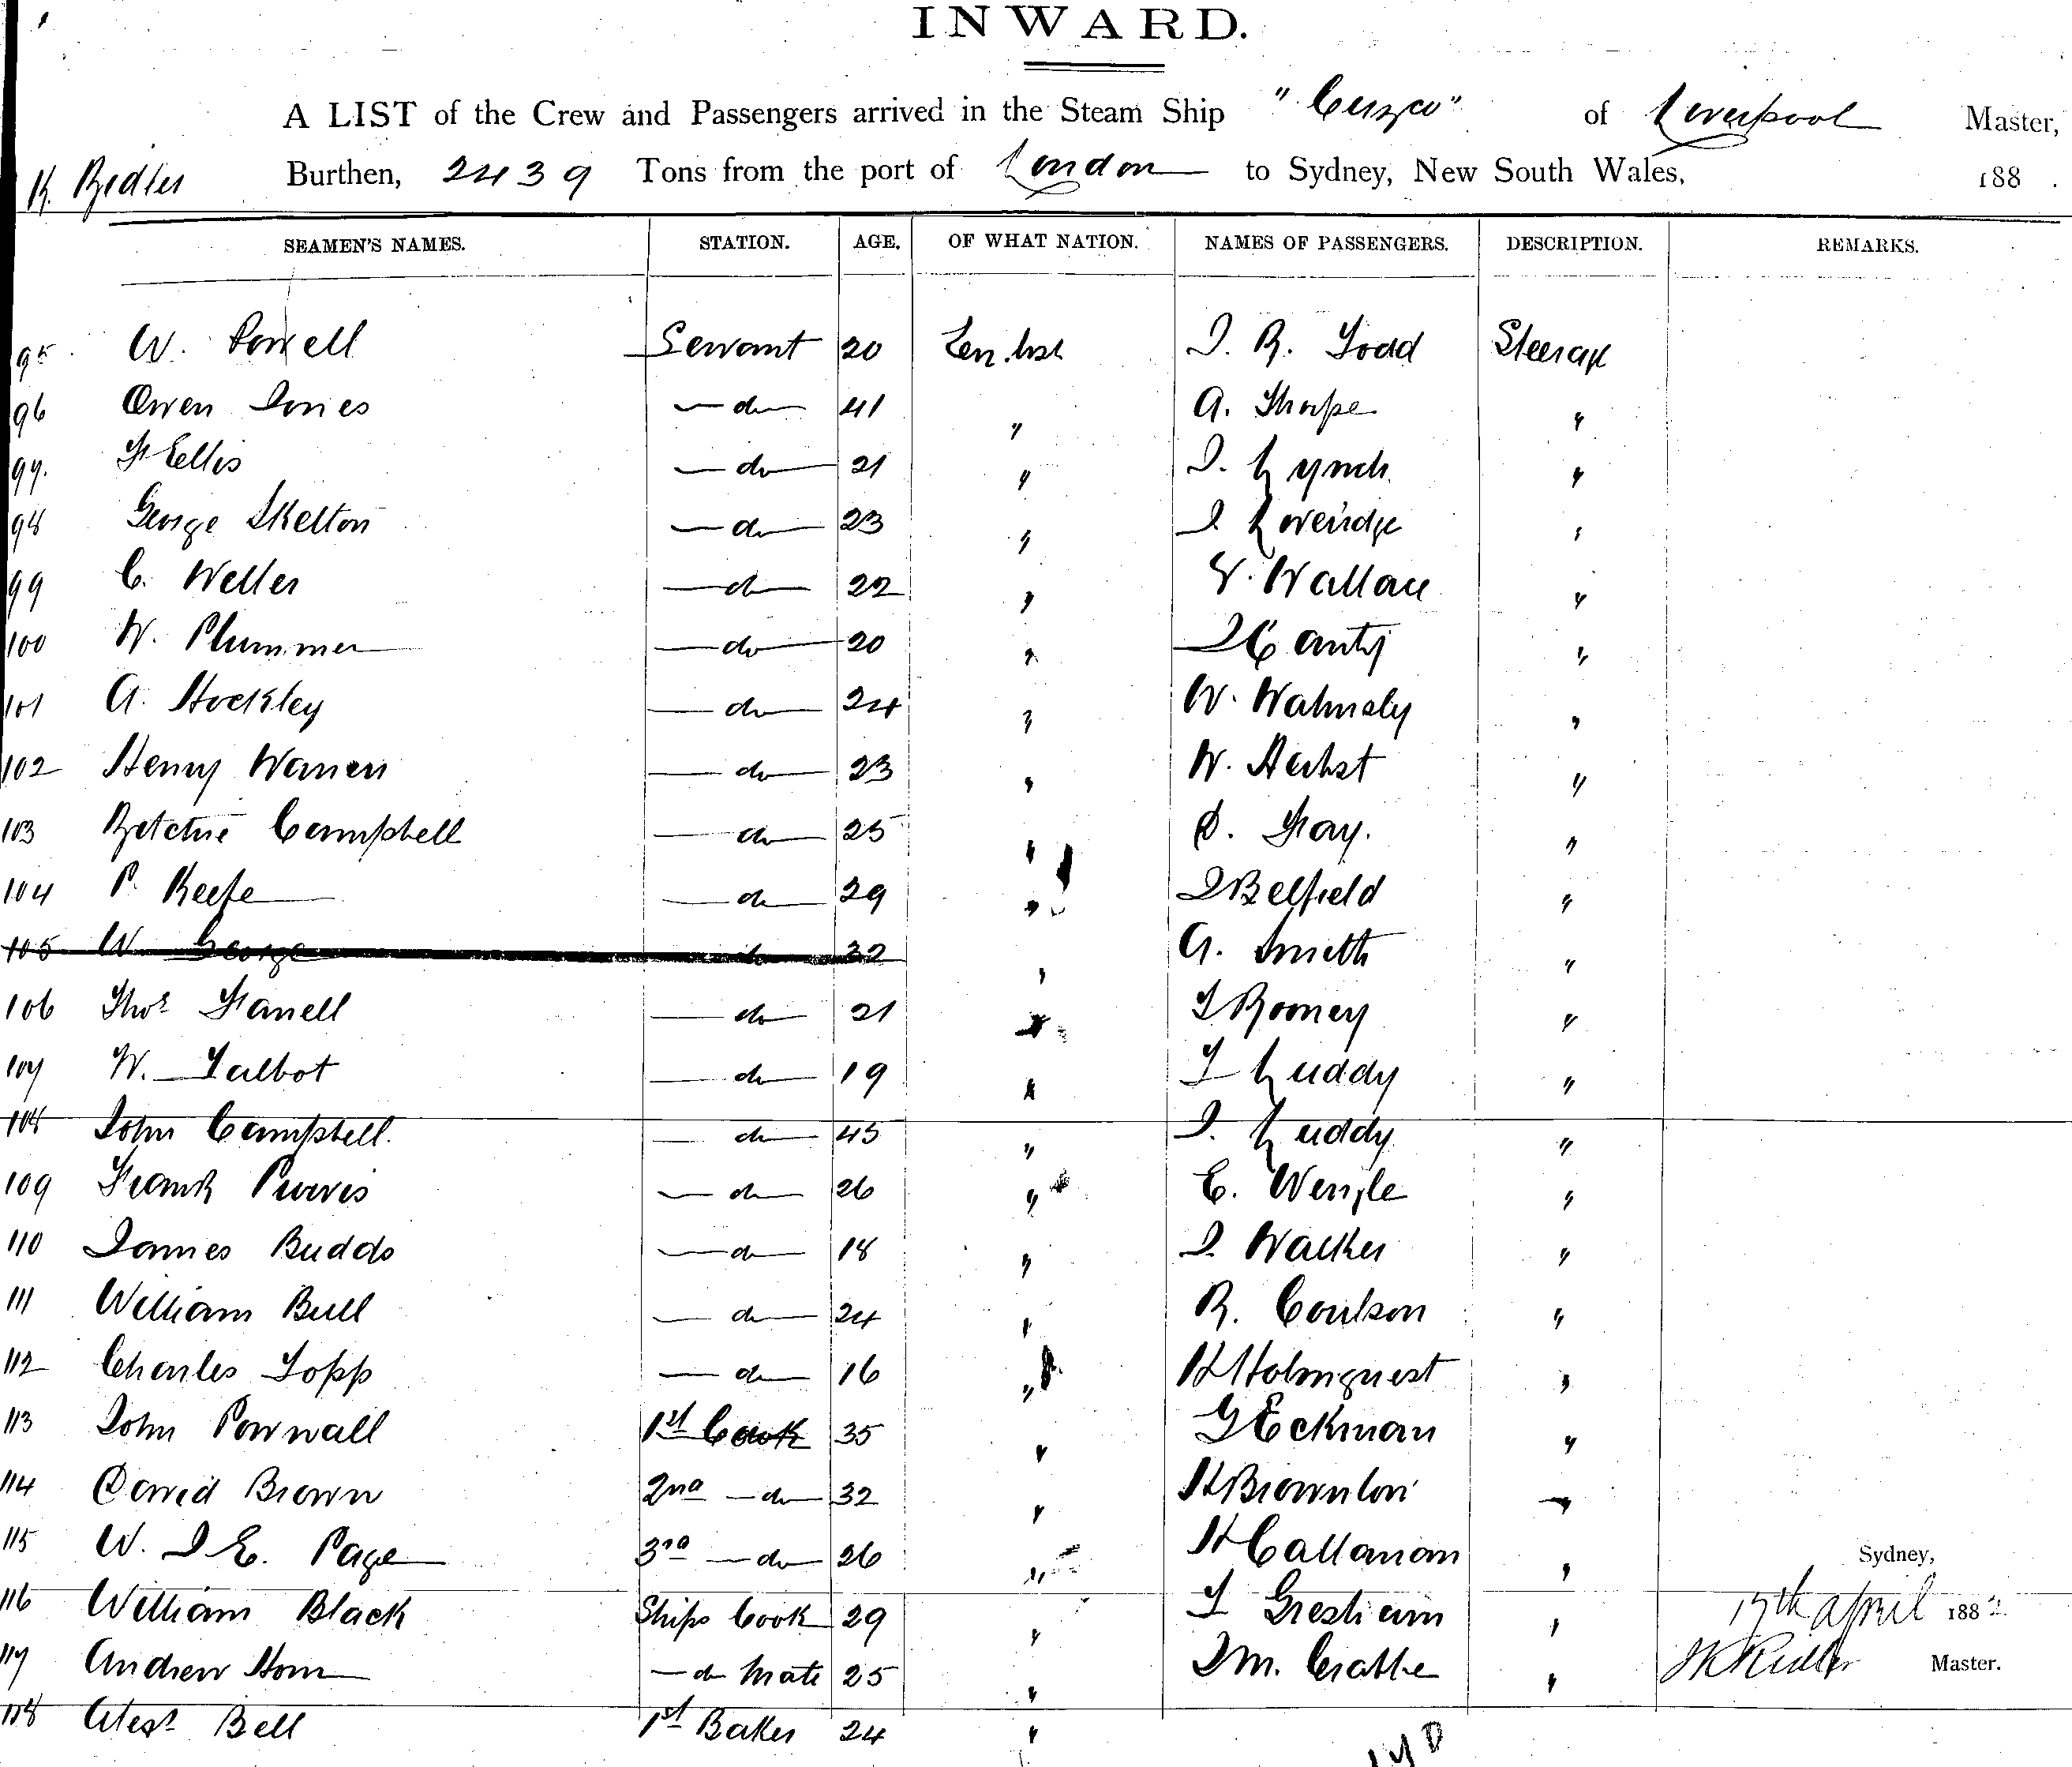 INWARD.
A LIST of the Crew and Passengers arrived in the Steam Ship "Cuzco" of Liverpool Master,
K. Ridler Burthen, 2439 Tons from the port of London to Sydney, New South Wales, 188 .
SEAMEN'S NAMES. STATION. AGE. OF WHAT NATION. NAMES OF PASSENGERS. DESCRIPTION. REMARKS.
95 W. Powell Servant 20 J. R. Todd Steerage
96 Owen Jones - do 41 " A. Thorpe "
97. F Ellis - do 21 " J. Lynch "
98 George Skelton - do 23 " J Loveridge "
99 C. Weller - do 22 " V. Wallace "
100 W. Plummer - do 20 " J Canty "
101 A. Hockley - do 24 " W. Walmsly "
102 Henry Warren - do 23 " W. Herbst "
103 Ritchie Campbell - do 25 " D. Fay. "
104 P. Keefe - do 29 " J Belfield "
105 W George do 32 " A. Smith "
106 Thos Farrell - do 21 " T Rooney "
107 W. Talbot - do 19 " T Luddy "
108 John Campbell. - do 45 " J. Luddy "
109 Frank Purvis - do 26 " E. "
110 James Budds - do 18 " J. Walker "
111 William Bull - do 24 " R. Coulson "
112 Charles Topp - do 16 " H Holmquest "
113 John Pownall 1st Cook 35 " G Eckman "
114 David Brown 2nd - do 32 " H Brownlow "
115 W. J E. Page 3rd - do 26 " H Callanan "
Sydney,
116 William Black Ships Cook 29 " T Gresham " 17th April 1882
117 Andrew Hom - do Mate 25 " J M. "
J K Ridler Master.
118 Alexr Bell 1st Baker 24 "